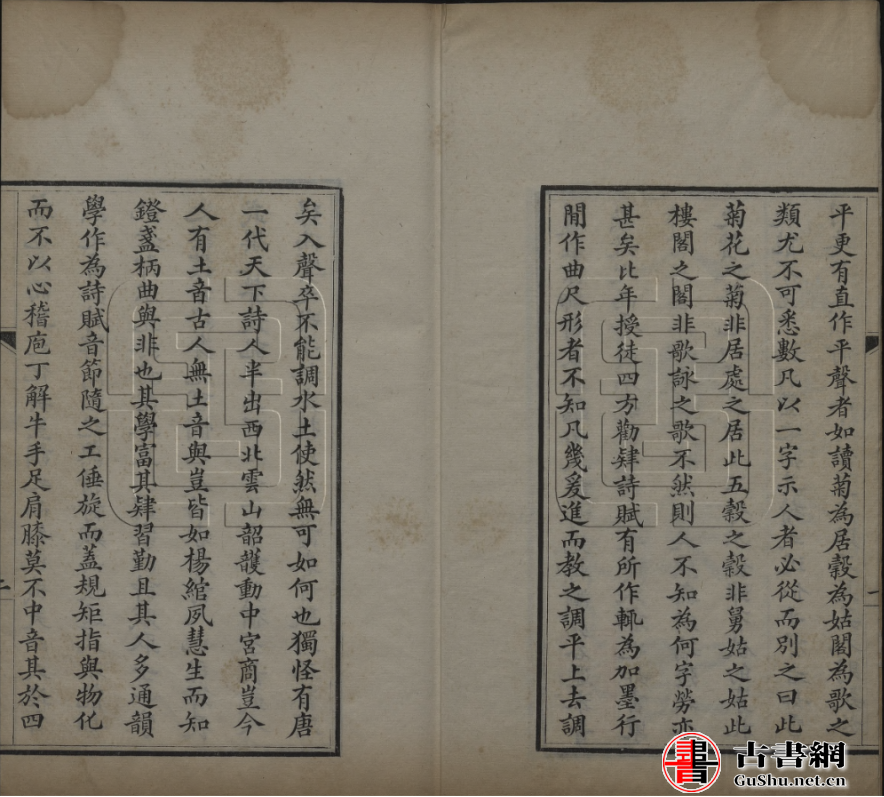 平更有直作平聲者如讀菊為居穀為姑閣為歌之
類尤不可悉數凡以一字示人者必從而別之曰此
菊花之菊非居處之居此五穀之穀非舅姑之姑此
樓閣之閣非歌詠之歌不然則人不知為何字勞亦
甚矣比年授徒四方勸肄詩賦有所作輒為加墨行
閒作曲尺形者不知凡幾爰進而教之調平上去調
一
矣入聲卒不能調水土使然無可如何也獨怪有唐
一代天下詩人半出西北雲山韶頀動中宮商豈今
人有土音古人無土音與豈皆如楊綰夙慧生而知
鐙盞柄曲與非也其學富其肄習勤且其人多通韻
學作為詩賦音節隨之工倕旋而蓋規矩指與物化
而不以心稽庖丁解牛手足肩膝莫不中音其於四
二
書 古書網
GuShu.net.cn